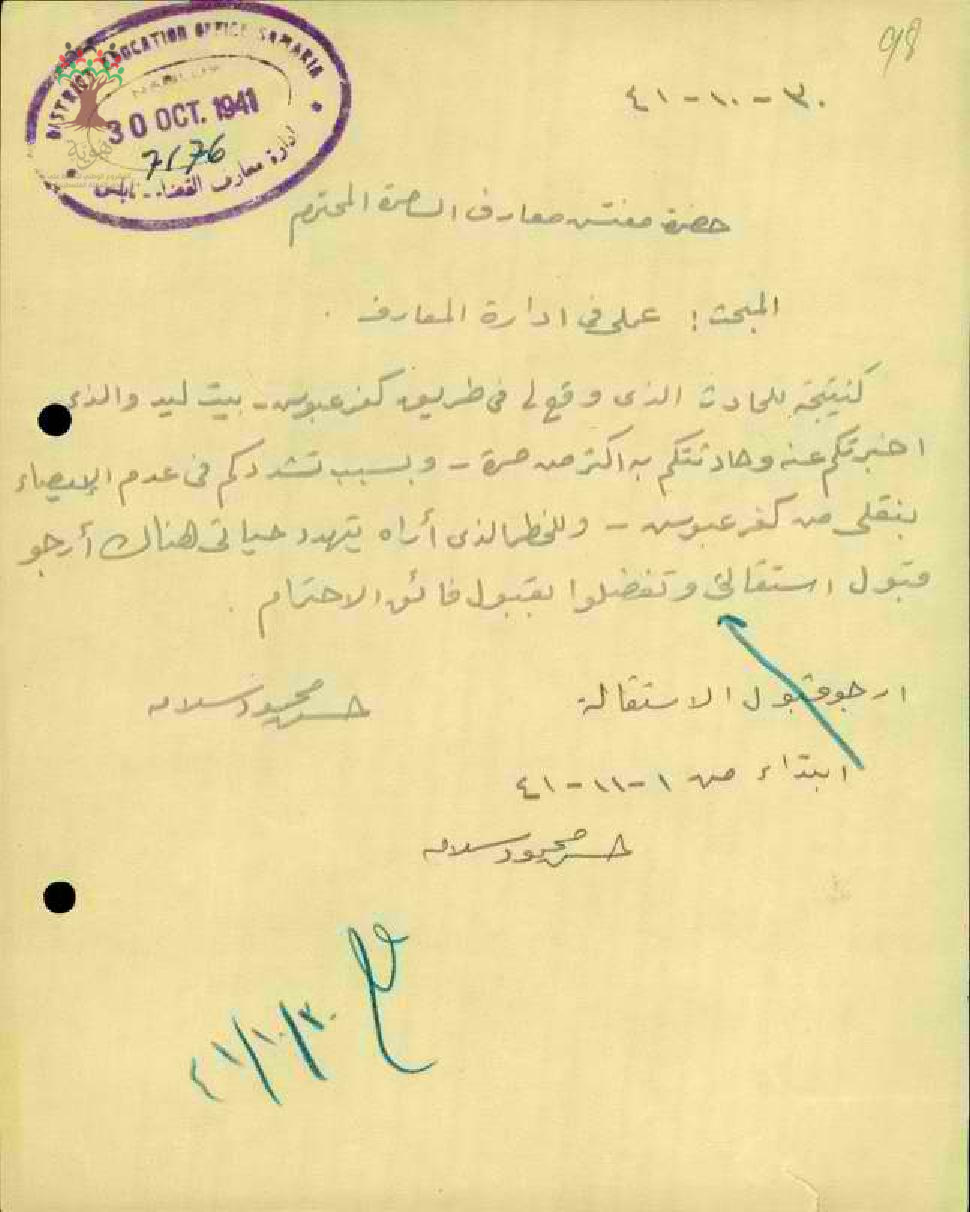 98
DISTRICT EDUCATION OFFICE SAMARIA
NABLUS
30 OCT. 1941
7176
إدارة معارف القضاء - نابلس
٣٠-١٠-٤١
حضرة مفتش معارف السامرة المحترم
المبحث: عملي في ادارة المعارف.
كنتيجة للحادث الذي وقع لي في طريق كفر عبوس - بيت ليد والذي
اخبرتكم عنه وحادثتكم به اكثر من مرة - وبسبب تشددكم في عدم الايصاء
بنقلي من كفر عبوس - وللخطر الذي أراه يتهدد حياتي هناك أرجو
قبول استقالتي وتفضلوا بقبول فائق الاحترام.
حسن محمود سلامه
ارجو قبول الاستقالة
ابتداء من ١-١١-٤١
حسن محمود سلامه
٣٠/١٠/٤١